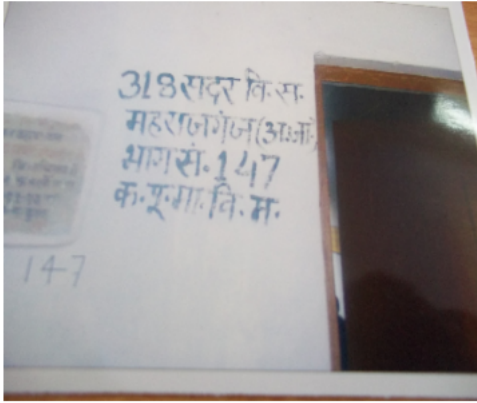 318 सदर वि. स.
महराजगंज (अ.जा)
भाग सं. 147
क. पू. मा. वि. म.
147